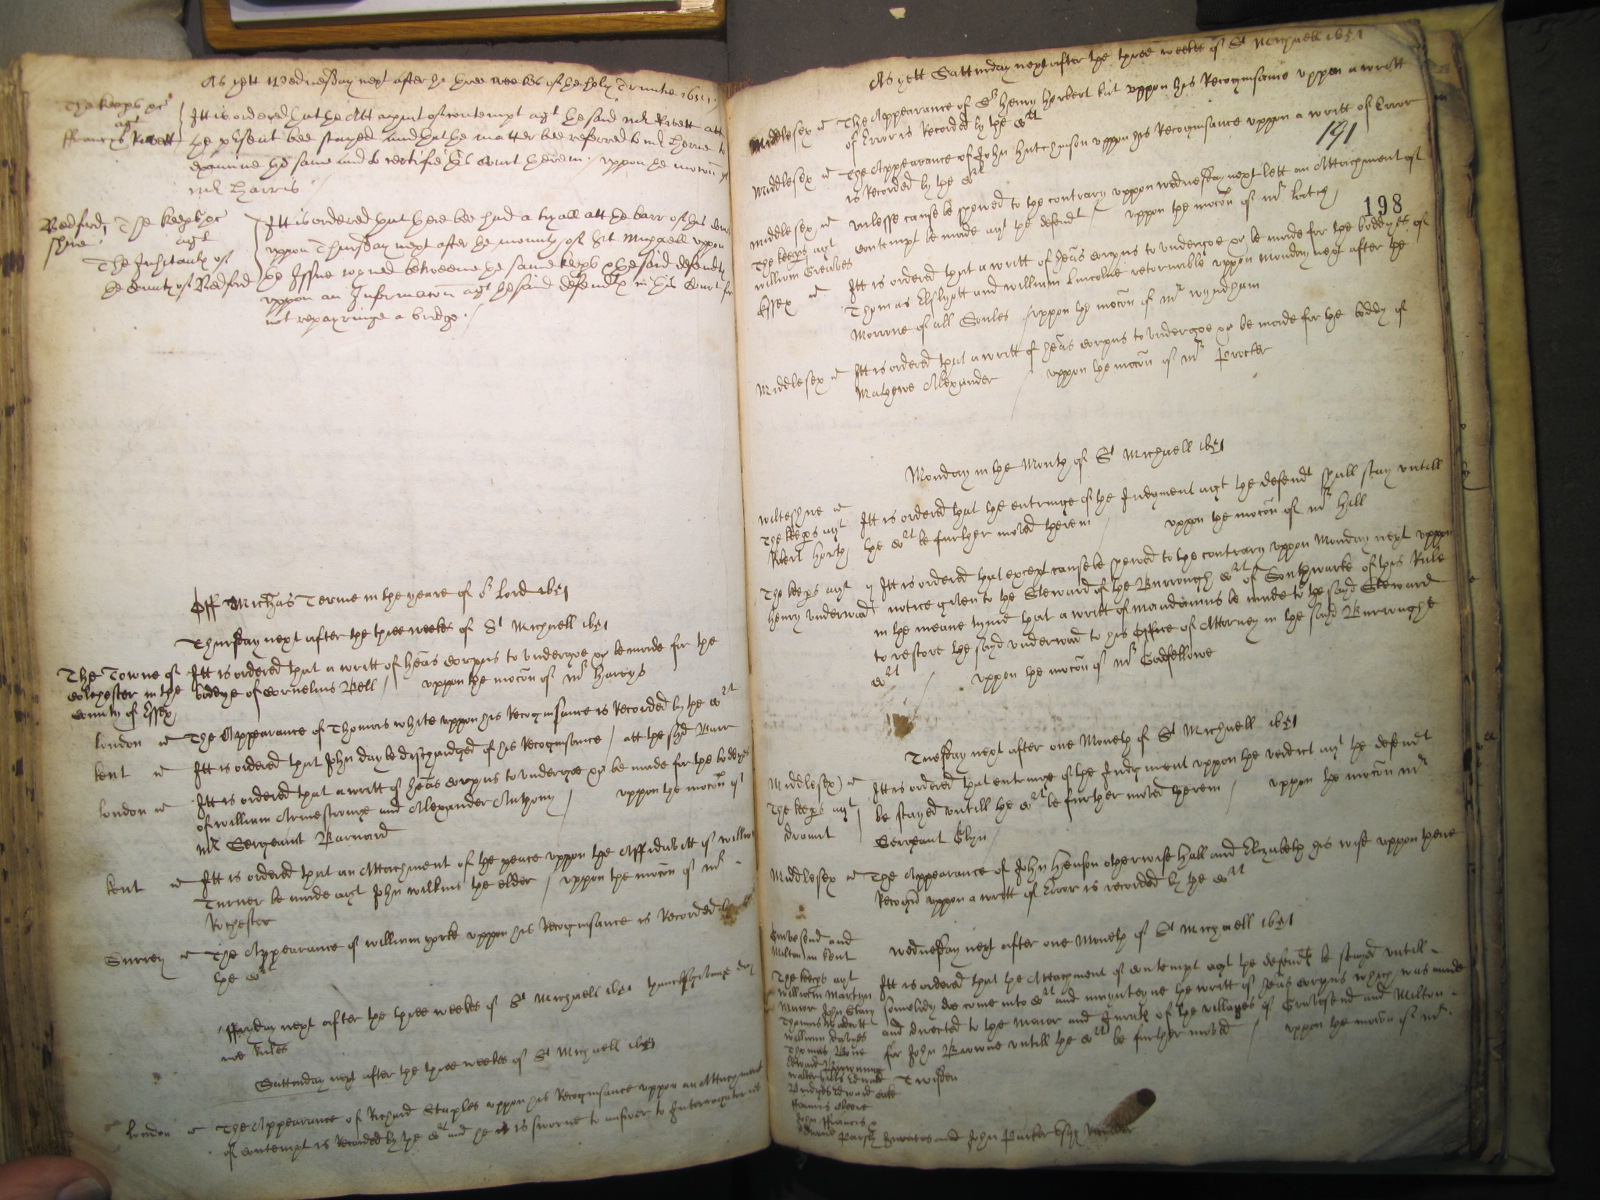 As yett Wednesday next after the three weekes of the holy Trinitie 1651
The keeps &c
agt
ffrancis Rivett
Itt is ordered that the Attachmt of contempt agt the said mr Rivett att
the psent bee stayed and that the matter bee referred to mr Herne to
examine the same and to certifie this Court herein / uppon the mocon of
mr Harris
Bedford
shire
The keeps &c
agt
The Inhitants of
the County of Bedford
Itt is ordered that there bee had a tryall att the barr of this Court
uppon Thursday next after the moneth of St Michaell uppon
the Issue joyned betweene the same keeps & the said defendts
uppon an Informacon agt the said defendts in this Court for
not repayringe a bridge /
Off Michas Terme in the yeare of or Lord 1651
Thursday next after the three weeks of St Michaell 1651
The Towne of
Colchester in the
County of Essex
Itt is ordered that a writt of heas corpus to undergoe &c be made for the
boddye of Cornelius Bell / uppon the mocon of mr Harrys
London ss The Appearance of Thomas White uppon his Recognisance is Recorded by the Crt
Kent ss Itt is ordered that John Day be dischardged of his Recognisance / att the syd Barr
London ss Itt is ordered that a writt of heas corpus to undergoe &c be made for the boddyes
of William Armestronge and Alexander Anthony / uppon the mocon of
mr Sergeant Barnard
Kent ss Itt is ordered that an Attachment of the peace uppon the Affidavitt of William
Turner be made agt John Wilkins the elder / uppon the mocon of mr
Rochester
Surrey ss The Appearance of William Yorke uppon his Recognisance is Recorded by
the Crt
ffryday next after the three weeks of St Michaell 1651
noe Rules
Satturday next after the three weekes of St Michaell 1651
London ss The Appearance of Richard Staples uppon his Recognisance uppon an Attachment
of contempt is Recorded by the Crt and he is sworne to answer to Interrogatories
As yett Satturday next after the three weeks of St Michaell 1651
Middlesex ss The Appearance of Sr Henry Herbert knt uppon his Recognisance uppon a writt
of Error is Recorded by the Crt
191
Middlesex ss The Appearance of John Hutchinson uppon his Recognisance uppon a writt of Error
is Recorded by the Crt
198
Middlesex ss
The keeps agt
William Greables
Unlesse cause be shewed to the contrary uppon Wednesday next lett an Attachment of
Contempt be made agt the defendt / uppon the mocon of mr Latch
Essex ss Itt is ordered that a writt of heas corpus to undergoe &c be made for the boddyes of
Thomas and William Lincolne retornable uppon Monday next after the
Morrow of all Soules / uppon the mocon of mr Wyndham
Middlesex ss Itt is ordered that a writt of heas corpus to undergoe &c be made for the boddy of
Mathewe Alexander / uppon the mocon of mr Procter
Monday in the Month of St Michaell 1651
Wilteshire ss
The keeps agt
Robert
Itt is ordered that the entringe of the Judgment agt the defendt shall stay untill
the Crt be further moved herein / uppon the mocon of mr Hill
The keeps agt
Henry Underwood
Itt is ordered that except cause be shewed to the contrary uppon Monday next uppon
notice given to the Steward of the Burrough Crt of Southwarke of this Rule
in the meane tyme that a writt of mandamus be made to the sayd Steward
to restore the sayd Underwood to his Office of Attorney in the sayd Burroughe
Crt / uppon the mocon of mr Goodfellowe
Tuesday next after one Moneth of St Michaell 1651
Middlesex ss
The keeps agt
Itt is ordered that entringe of the Judgment uppon the verdict agt the defendt
be stayed untill the Crt be further moved herein / uppon the mocon mr
Sergeant Glyn /
Middlesex ss The Appearance of John Henson otherwise Hall and Elizabeth his wife uppon there
Recogn uppon a writt of Error is recorded by the Crt
Wednesday next after one Moneth of St Michaell 1651
Gravesend and
Milton in Kent
The keeps agt
William Martyn
Maior
Itt is ordered that the Attachment of contempt agt the defendts be stayed untill
somebody doe come into Crt and the writt of heas corpus which was made
and directed to the Maior and of the villages of Gravesend and Milton
for John Browne untill the Crt be further moved / uppon the mocon of mr
Twisden
William
Thomas
Edward
ffrancis
John ffrancis
and John Parker